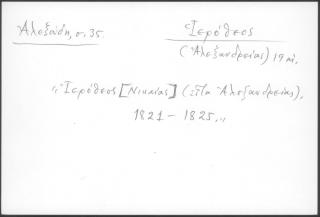 Ἀλεξούδη, σ. 35.
Ἱερόθεος
(Ἀλεξανδρείας) 19 αἰ.
"Ἱερόθεος [Νικαίας] (εἶτα Ἀλεξανδρείας),
1821 – 1825,,